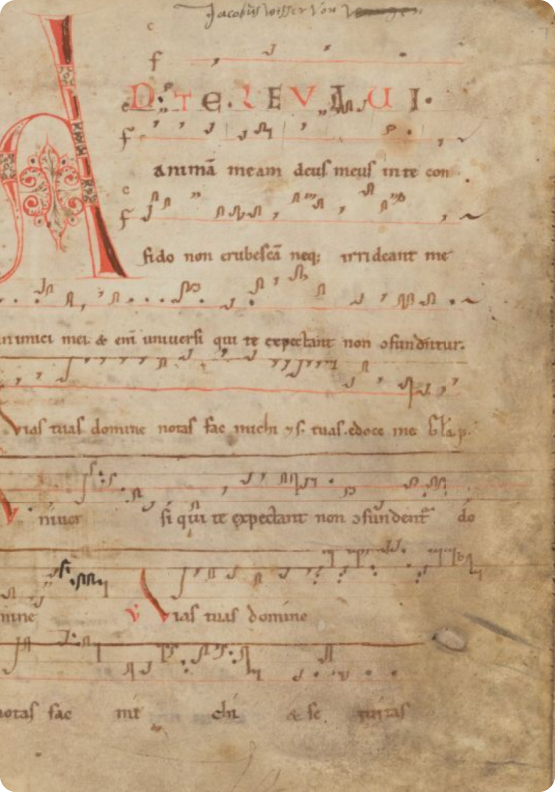 Jacobus von
A D TE LEVAVI
animā meam deus meus in te con
fido non erubescā neq; irrideant me
inimici mei & eni universi qui te expectant non
vias tuas domine notas fac michi & s. tuas edoce me
niver si qui te expectant non do
mine V Vias tuas domine
notas fac mi chi & se mitas